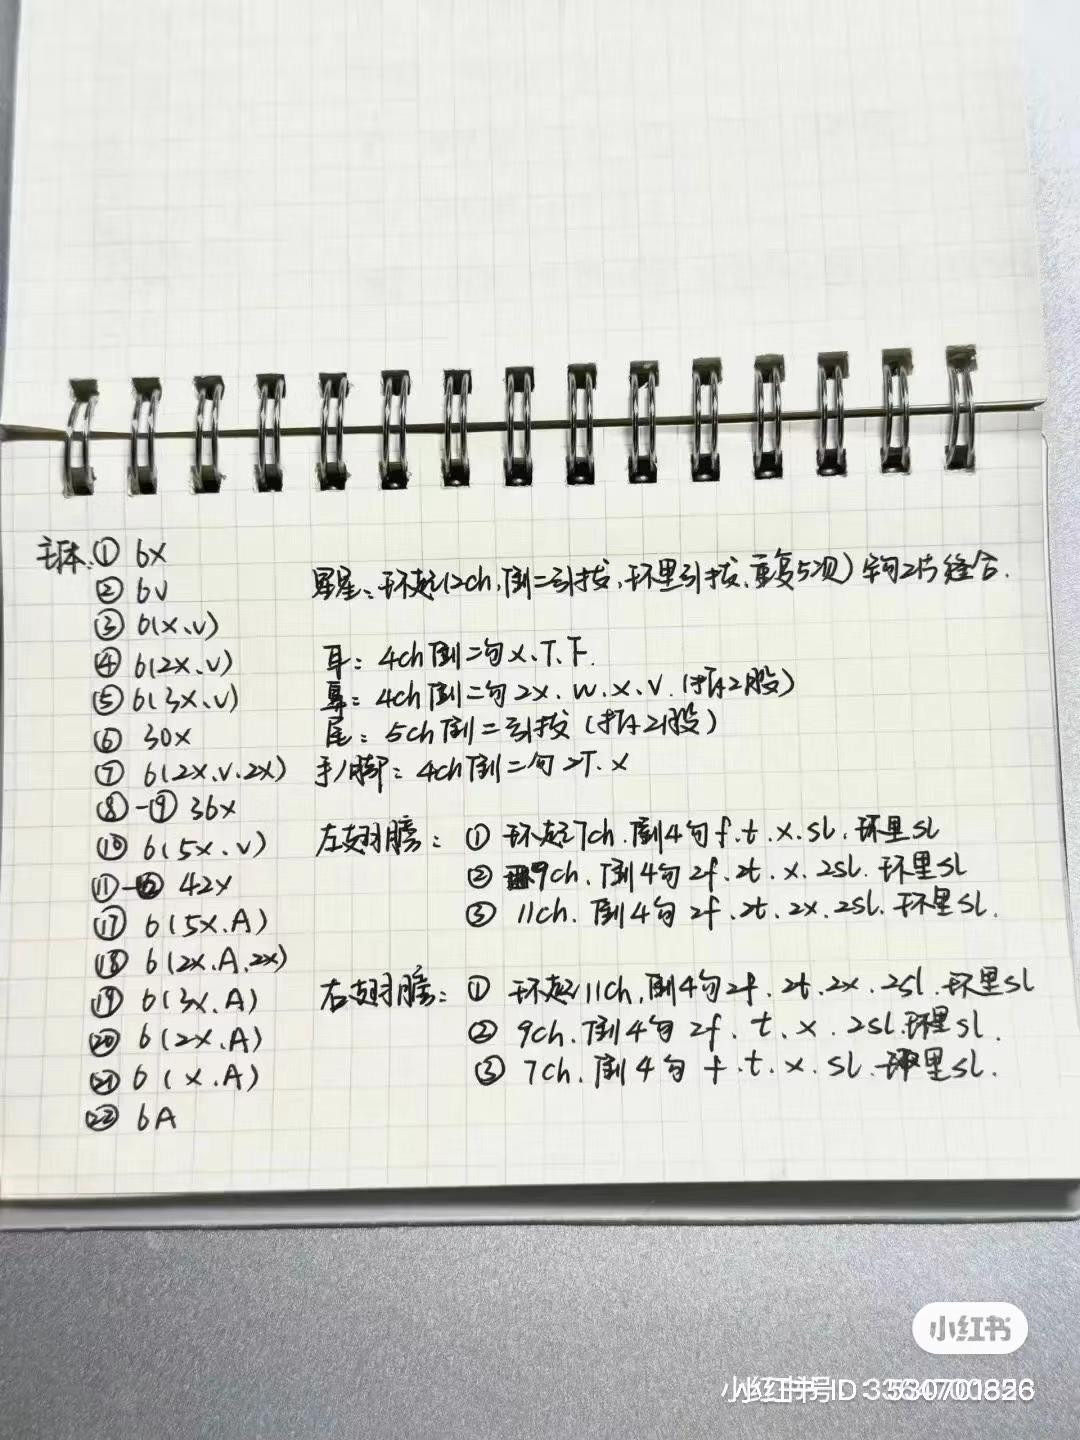 主体：① 6X
② 6V
③ 6(X、V)
④ 6(2X、V)
⑤ 6(3X、V)
⑥ 30X
⑦ 6(2X、V、2X)
⑧-⑨ 36X
⑩ 6(5X、V)
⑪-⑯ 42X
⑰ 6(5X、A)
⑱ 6(2X、A、2X)
⑲ 6(3X、A)
⑳ 6(2X、A)
㉑ 6(X、A)
㉒ 6A
星星：环起(2ch，倒二引拔，环里引拔，重复5次) 钩2片缝合.
耳：4ch 倒二勾 X、T、F.
鼻：4ch 倒二勾 2X、W、X、V.(拆2股)
尾：5ch 倒二引拔 (拆2股)
手/脚：4ch 倒二勾 2T、X
左翅膀：① 环起7ch. 倒4勾 f.t.x.sl. 环里sl
② 9ch. 倒4勾 2f.2t.x.2sl. 环里sl
③ 11ch. 倒4勾 2f.2t.2x.2sl. 环里sl.
右翅膀：① 环起11ch. 倒4勾 2f.2t.2x.2sl. 环里sl
② 9ch. 倒4勾 2f.t.x.2sl. 环里sl.
③ 7ch. 倒4勾 f.t.x.sl. 环里sl.
小红书